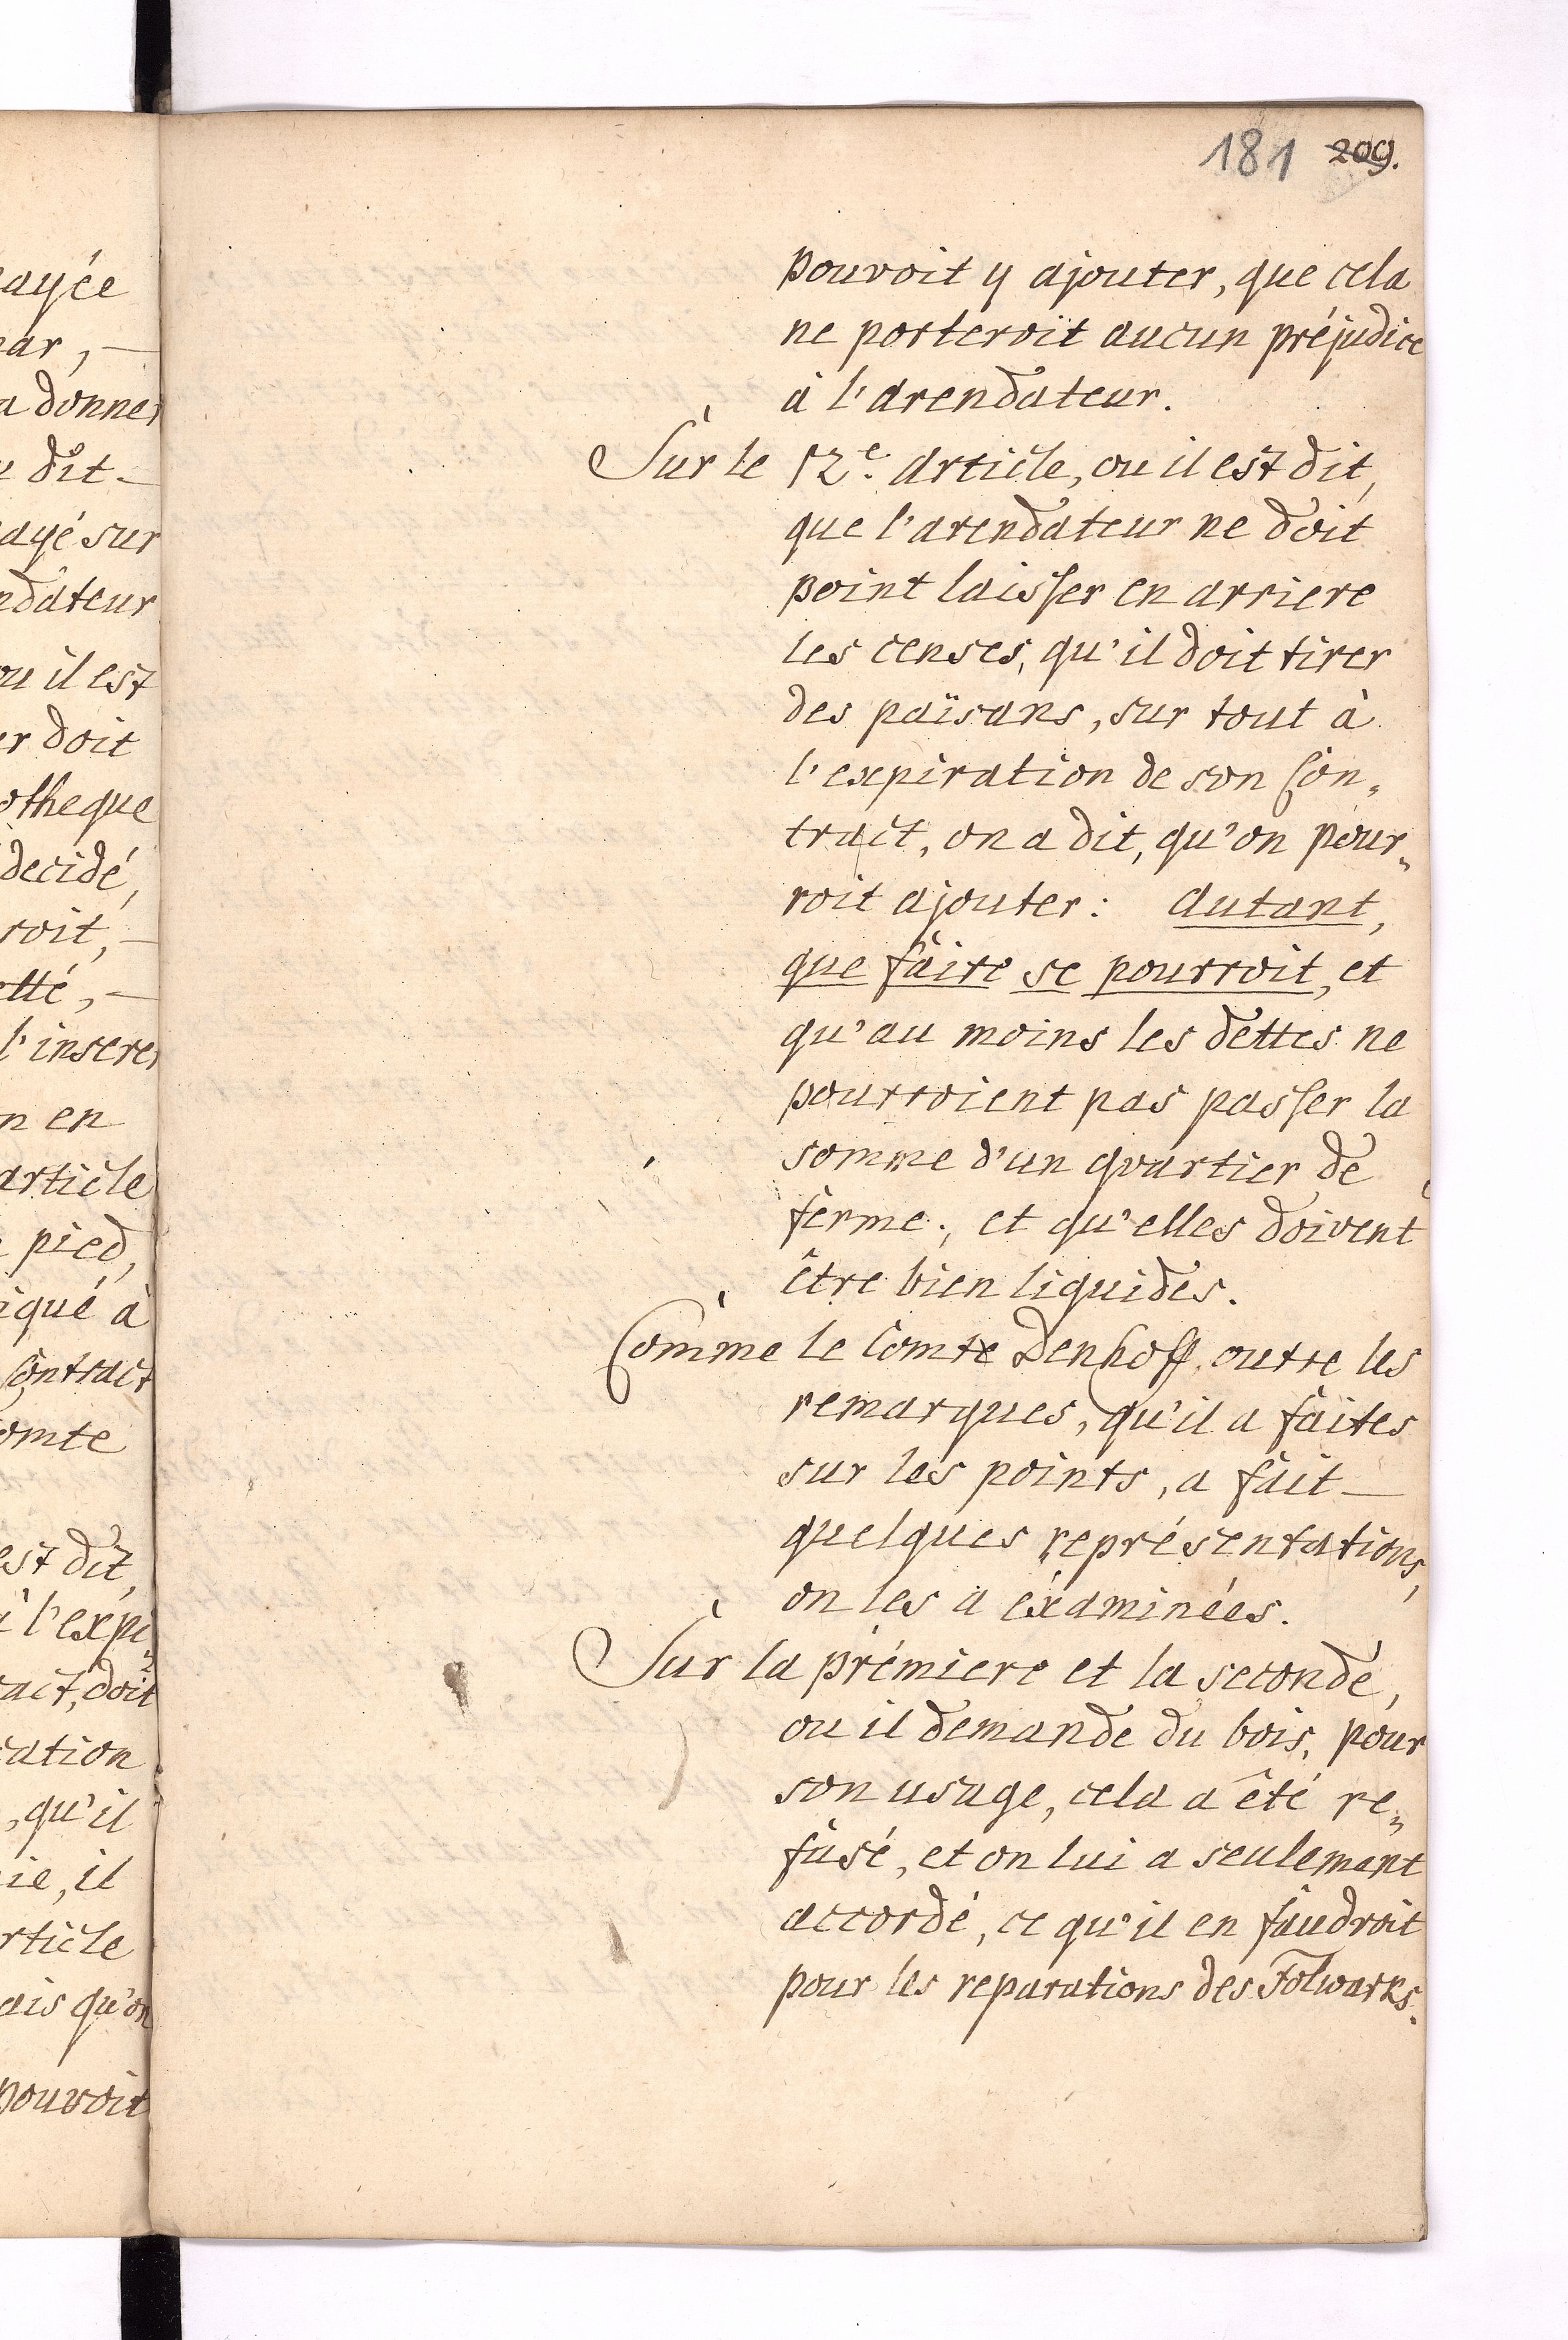 181 209.
payée
par, —
a donner
dit —
payé sur
ndateur
ou il est
er doit
otheque
decidé,
roit, —
etté, —
l'inserer
n en
article
pied,
iqué à
Contract
omte
est dit,
à l'expi„
act, doit
cation
, qu'il
ie, il
rticle
ais qu'on
pouvoit
pouvoit y ajouter, que cela
ne porteroit aucun préjudice
à l'arendateur.
Sur le 12e. article, ou il est dit,
que l'arendateur ne doit
point laisser en arriere
les censes, qu'il doit tirer
des païsans, sur tout à
l'expiration de son Con„
tract, on a dit, qu'on pour„
roit ajouter: autant,
que faire se pourroit, et
qu'au moins les dettes ne
pourroient pas passer la
somme d'un quartier de
ferme; et qu'elles doivent
être bien liquides.
Comme le Comte Denhoff, outre les
remarques, qu'il a faites
sur les points, a fait —
quelques représentations,
on les a éxaminées.
Sur la prémiere et la seconde,
ou il demande du bois, pour
son usage, cela a été re„
fusé, et on lui a seulemant
accordé, ce qu'il en faudroit
pour les reparations des Folwarks.